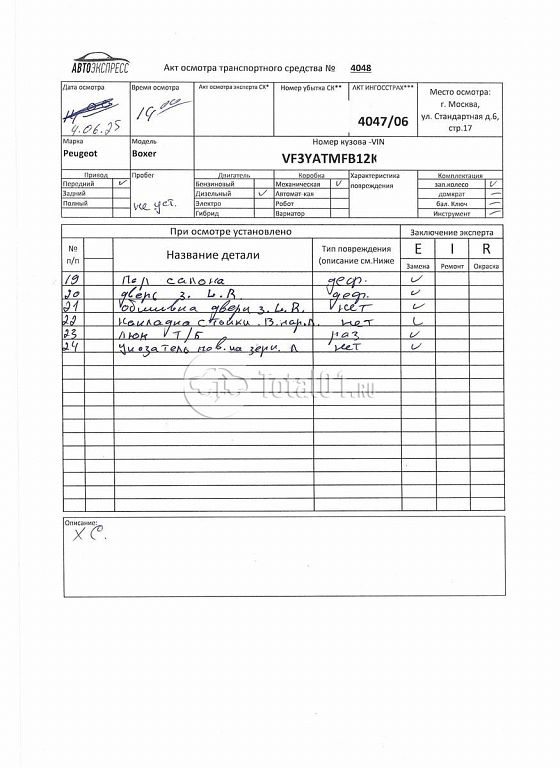 АВТОЭКСПРЕСС
Акт осмотра транспортного средства № 4048
Дата осмотра
4.06.25
Время осмотра
14 00
Акт осмотра эксперта СК*
Номер убытка СК**
АКТ ИНГОССТРАХ***
4047/06
Место осмотра:
г. Москва,
ул. Стандартная д.6,
стр.17
Марка
Peugeot
Модель
Boxer
Номер кузова -VIN
VF3YATMFB12K
Привод
Передний ✓
Задний
Полный
Пробег
не уст.
Двигатель
Бензиновый
Дизельный ✓
Электро
Гибрид
Коробка
Механическая ✓
Автомат-кая
Робот
Вариатор
Характеристика
повреждения
Комплектация
зап.колесо ✓
домкрат —
бал. Ключ —
Инструмент —
При осмотре установлено
Заключение эксперта
№
п/п
Название детали
Тип повреждения
(описание см.Ниже
E I R
Замена Ремонт Окраска
19 Пол салона деф. ✓
20 дверь з. L.R. деф. ✓
21 обшивка двери з. L.R. нет ✓
22 накладка стойки В.нар.Л. нет ✓
23 люк Т/Б раз ✓
24 указатель пов. на зерк. Л нет ✓
Total01.ru
Описание:
Х С.